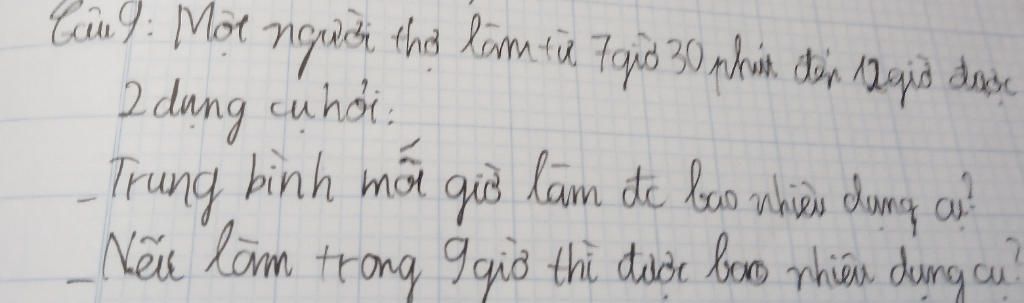 Câu 9: Một người thợ làm từ 7 giờ 30 phút đến 12 giờ được
2 dụng cụ hỏi:
_ Trung bình mỗi giờ làm đc bao nhiêu dụng cụ?
_ Nếu làm trong 9 giờ thì được bao nhiêu dụng cụ?